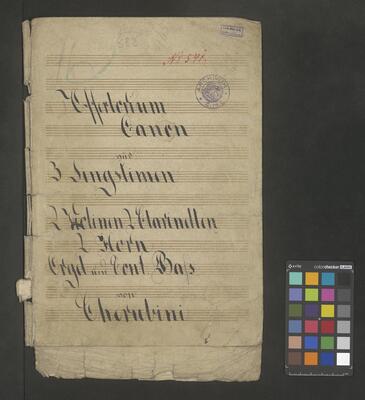 588
No 541.
Offertorium
Canon
aus
3 Singstimen
2 Violinen 2 Clarinetten
2 Horn
Orgel und Cont. Baß
von
Cherubini